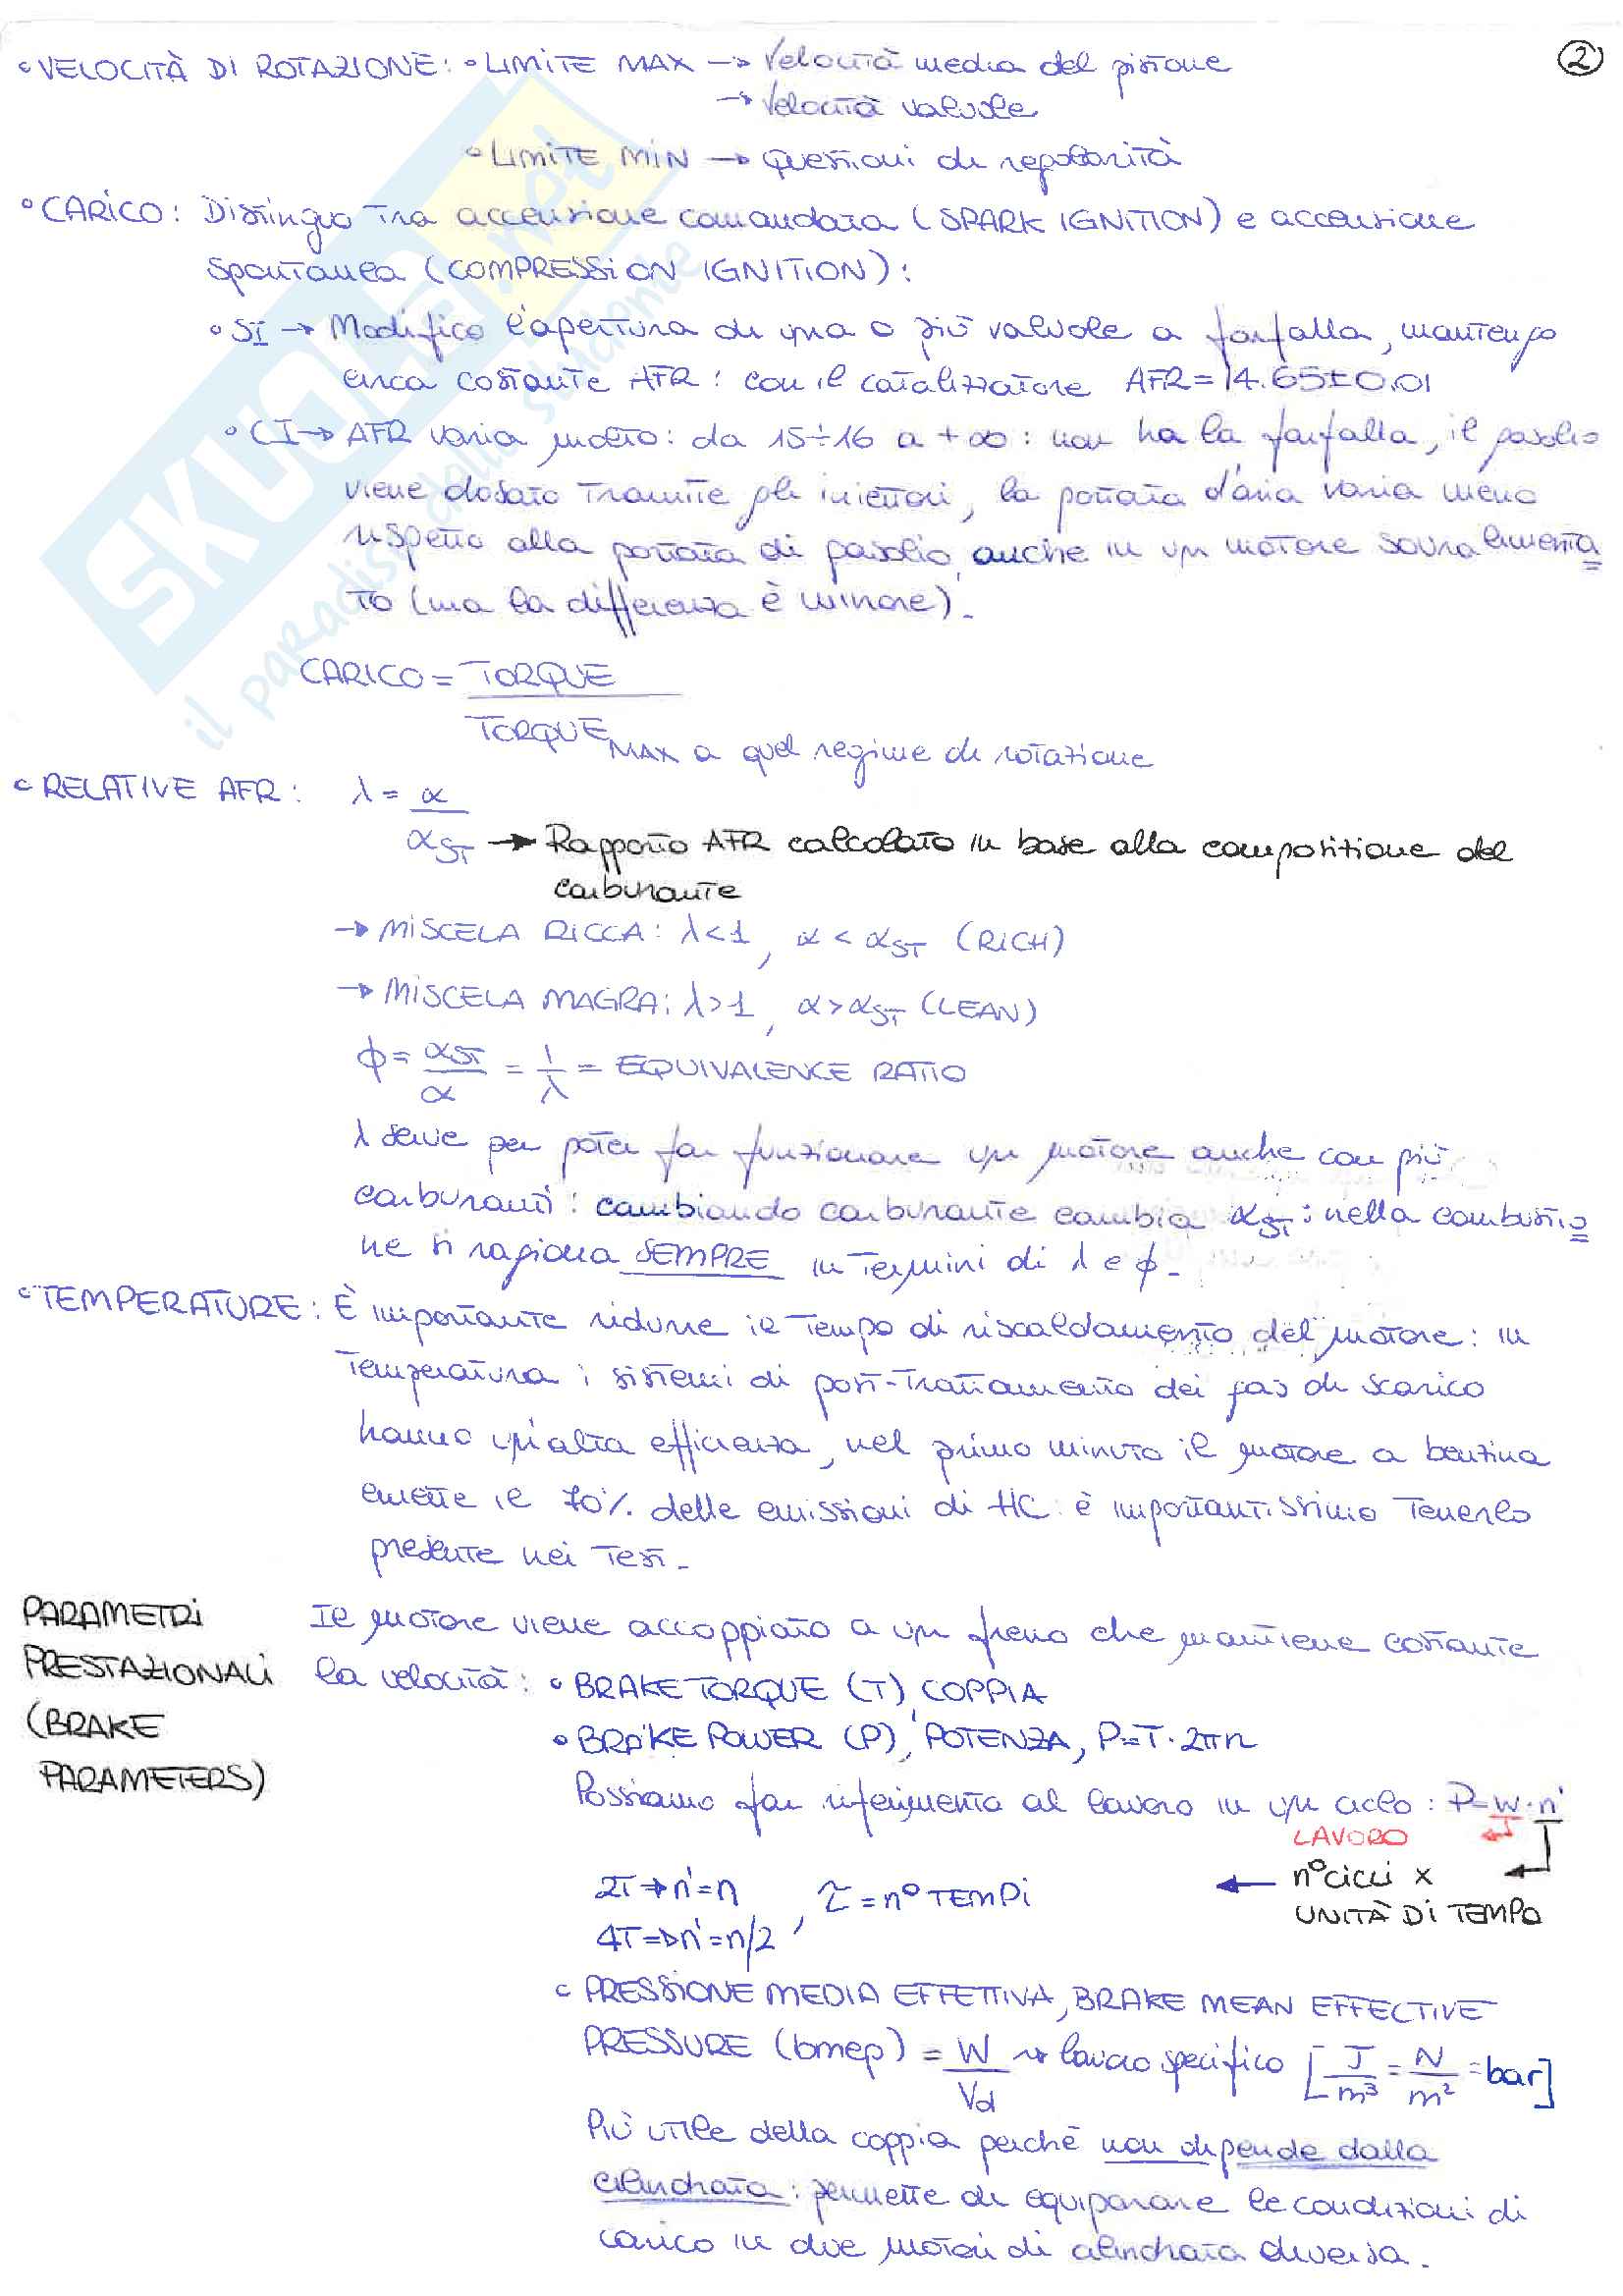 ②
° VELOCITÀ DI ROTAZIONE: ° LIMITE MAX → Velocità media del pistone
→ Velocità valvole
° LIMITE MIN → Questioni di regolarità
° CARICO: Distinguo tra accensione comandata (SPARK IGNITION) e accensione
spontanea (COMPRESSION IGNITION):
° SI → Modifico l'apertura di una o più valvole a farfalla, mantengo
circa costante AFR: con il catalizzatore AFR = 14.65±0.01
° CI → AFR varia molto: da 15÷16 a +∞: non ha la farfalla, il gasolio
viene dosato tramite gli iniettori, la portata d'aria varia meno
rispetto alla portata di gasolio, anche in un motore sovralimenta
to (ma la differenza è minore).
CARICO = TORQUE
TORQUE MAX a quel regime di rotazione
° RELATIVE AFR: λ = α
αST → Rapporto AFR calcolato in base alla composizione del
carburante
→ MISCELA RICCA: λ<1, α < αST (RICH)
→ MISCELA MAGRA: λ>1, α>αST (LEAN)
ϕ = αST/α = 1/λ = EQUIVALENCE RATIO
λ serve per poter far funzionare un motore anche con più
carburanti: cambiando carburante cambia αST: nella combustio
ne si ragiona SEMPRE in termini di λ e ϕ.
° TEMPERATURE: È importante ridurre il tempo di riscaldamento del motore: in
temperatura i sistemi di post-trattamento dei gas di scarico
hanno un'alta efficienza, nel primo minuto il motore a benzina
emette il 70% delle emissioni di HC: è importantissimo tenerlo
presente nei test.
PARAMETRI
PRESTAZIONALI
(BRAKE
PARAMETERS)
Il motore viene accoppiato a un freno che mantiene costante
la velocità: ° BRAKE TORQUE (T), COPPIA
° BRAKE POWER (P), POTENZA, P=T·2πn
Possiamo far riferimento al lavoro in un ciclo: P=W·n'
LAVORO
n° cicli x
UNITÀ DI TEMPO
2T → n'=n
4T → n'=n/2, τ = n° TEMPI
° PRESSIONE MEDIA EFFETTIVA, BRAKE MEAN EFFECTIVE
PRESSURE (bmep) = W/Vd → lavoro specifico [J/m³ = N/m² = bar]
Più utile della coppia perché non dipende dalla
cilindrata: permette di equiparare le condizioni di
carico in due motori di cilindrata diversa.
SKUOLA.net
il paradiso dello studente